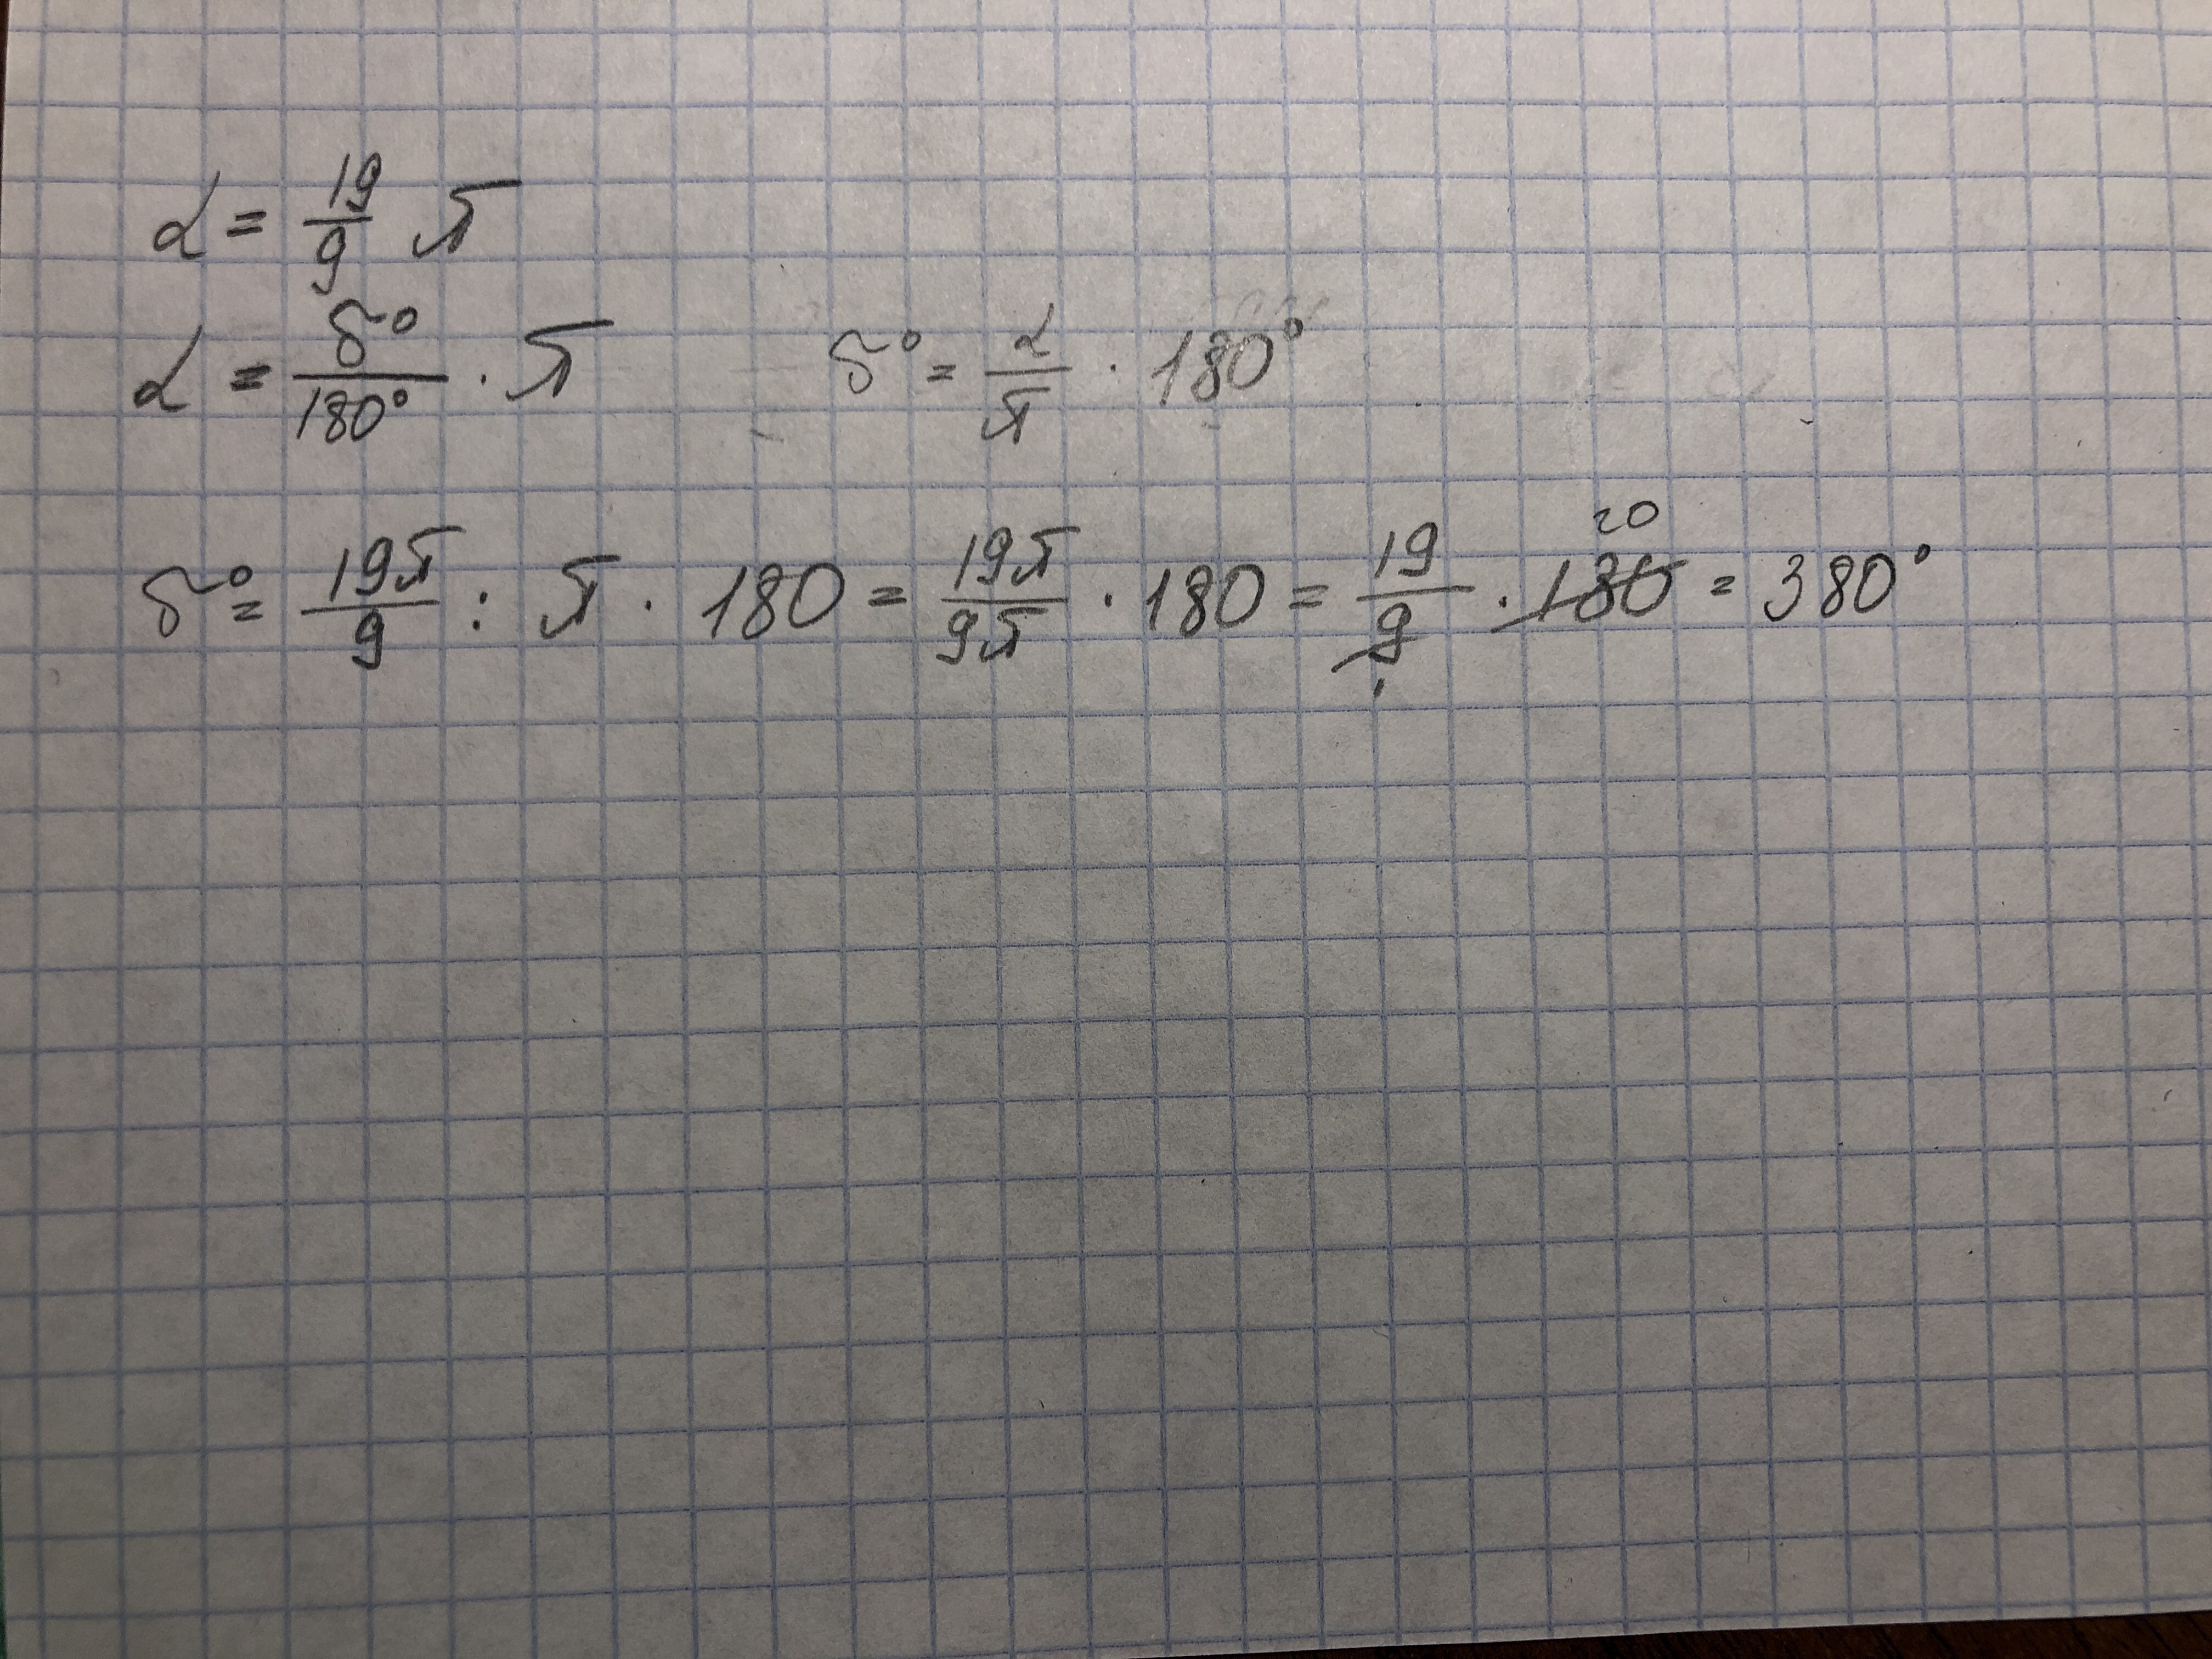 α = 19/9 π
α = δ°/180° · π    δ° = α/π · 180°
δ° = 19π/9 : π · 180 = 19π/9π · 180 = 19/9 · 180 20 = 380°